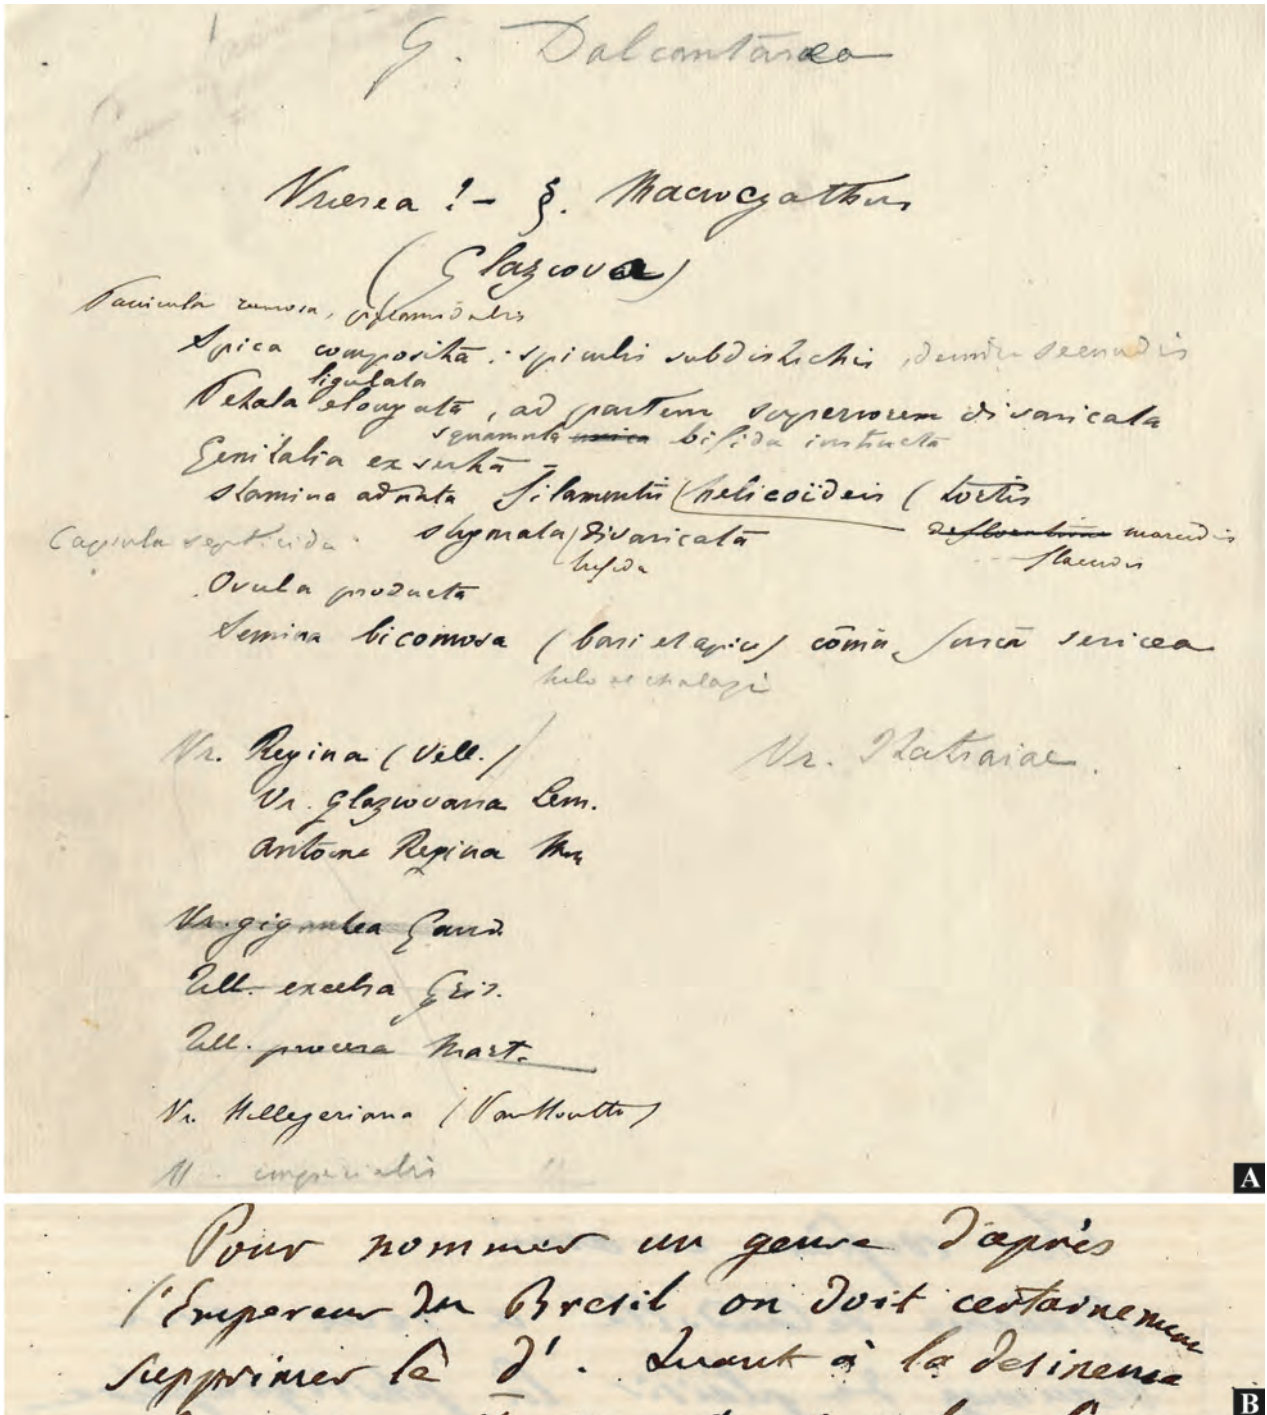 G. Dalcantaraea
Vriesea ! - §. Macrocyathus
(Glaziova)
Panicula ramosa, pyramidalis
Spica composita : spiculis subdistichis, demum secundis
ligulata
Petala elongata, ad partem superiorem divaricata
squamula unica bifida instructa
Genitalia exserta -
stamina adnata filamentis (helicoïdeis (tortis
Capsula septicida. stigmata (divaricata marcidis
bifida flaccidis
Ovula producta
Semina bicomosa (basi et apice) coma fusca sericea
hilo ac chalaza
Vr. Regina (Vell.)
Vr. Glaziovana Lem.
Vr. Itatiaiae.
Antoine Regina
Vr. gigantea Gaud.
Till. excelsa Gris.
Till. procera Mart.
Vr. Hellegeriana (Van Houtte)
V. imperialis
A
Pour nommer un genre d'après
l'Empereur du Bresil on doit certainement
supprimer le d'. Quant à la desinence
B